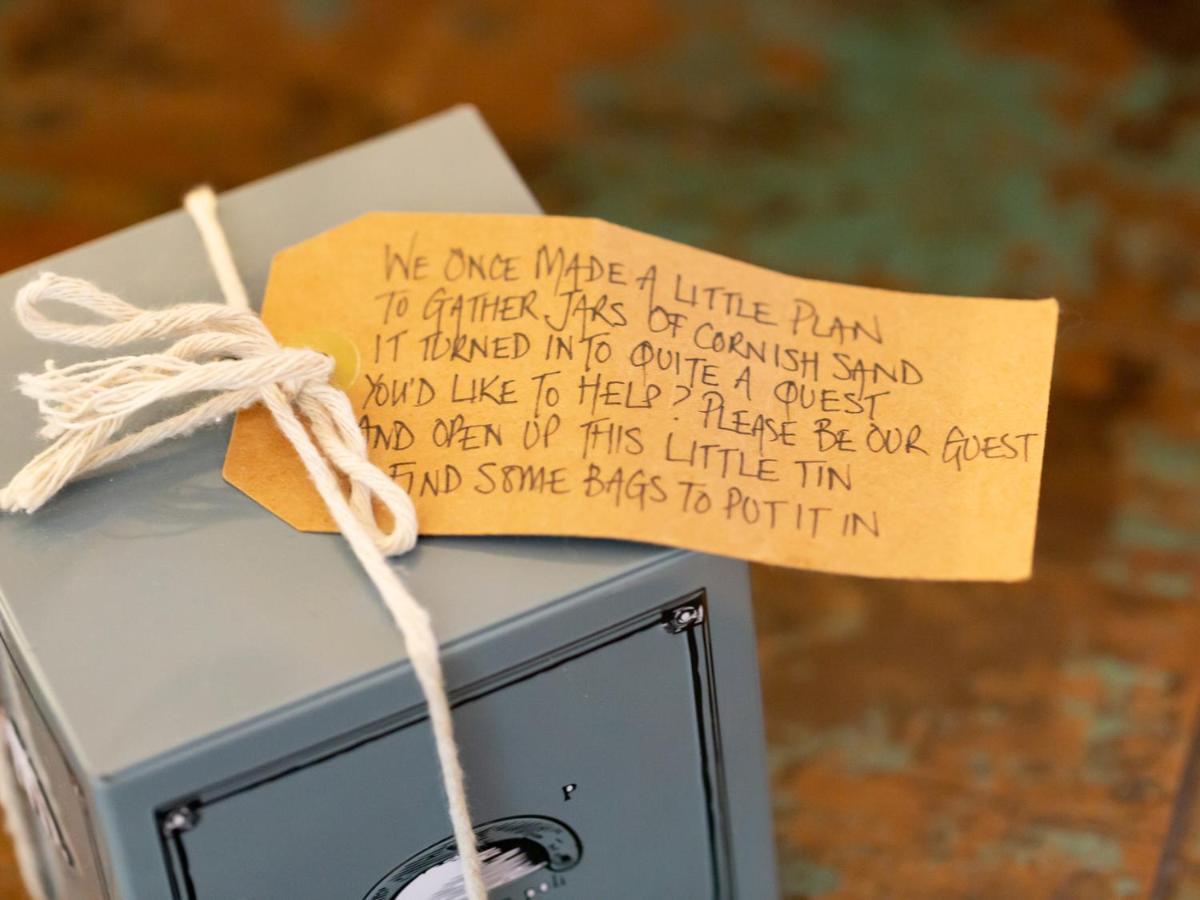 WE ONCE MADE A LITTLE PLAN
TO GATHER JARS OF CORNISH SAND
IT TURNED INTO QUITE A QUEST
YOU'D LIKE TO HELP? PLEASE BE OUR GUEST
AND OPEN UP THIS LITTLE TIN
FIND SOME BAGS TO PUT IT IN
P